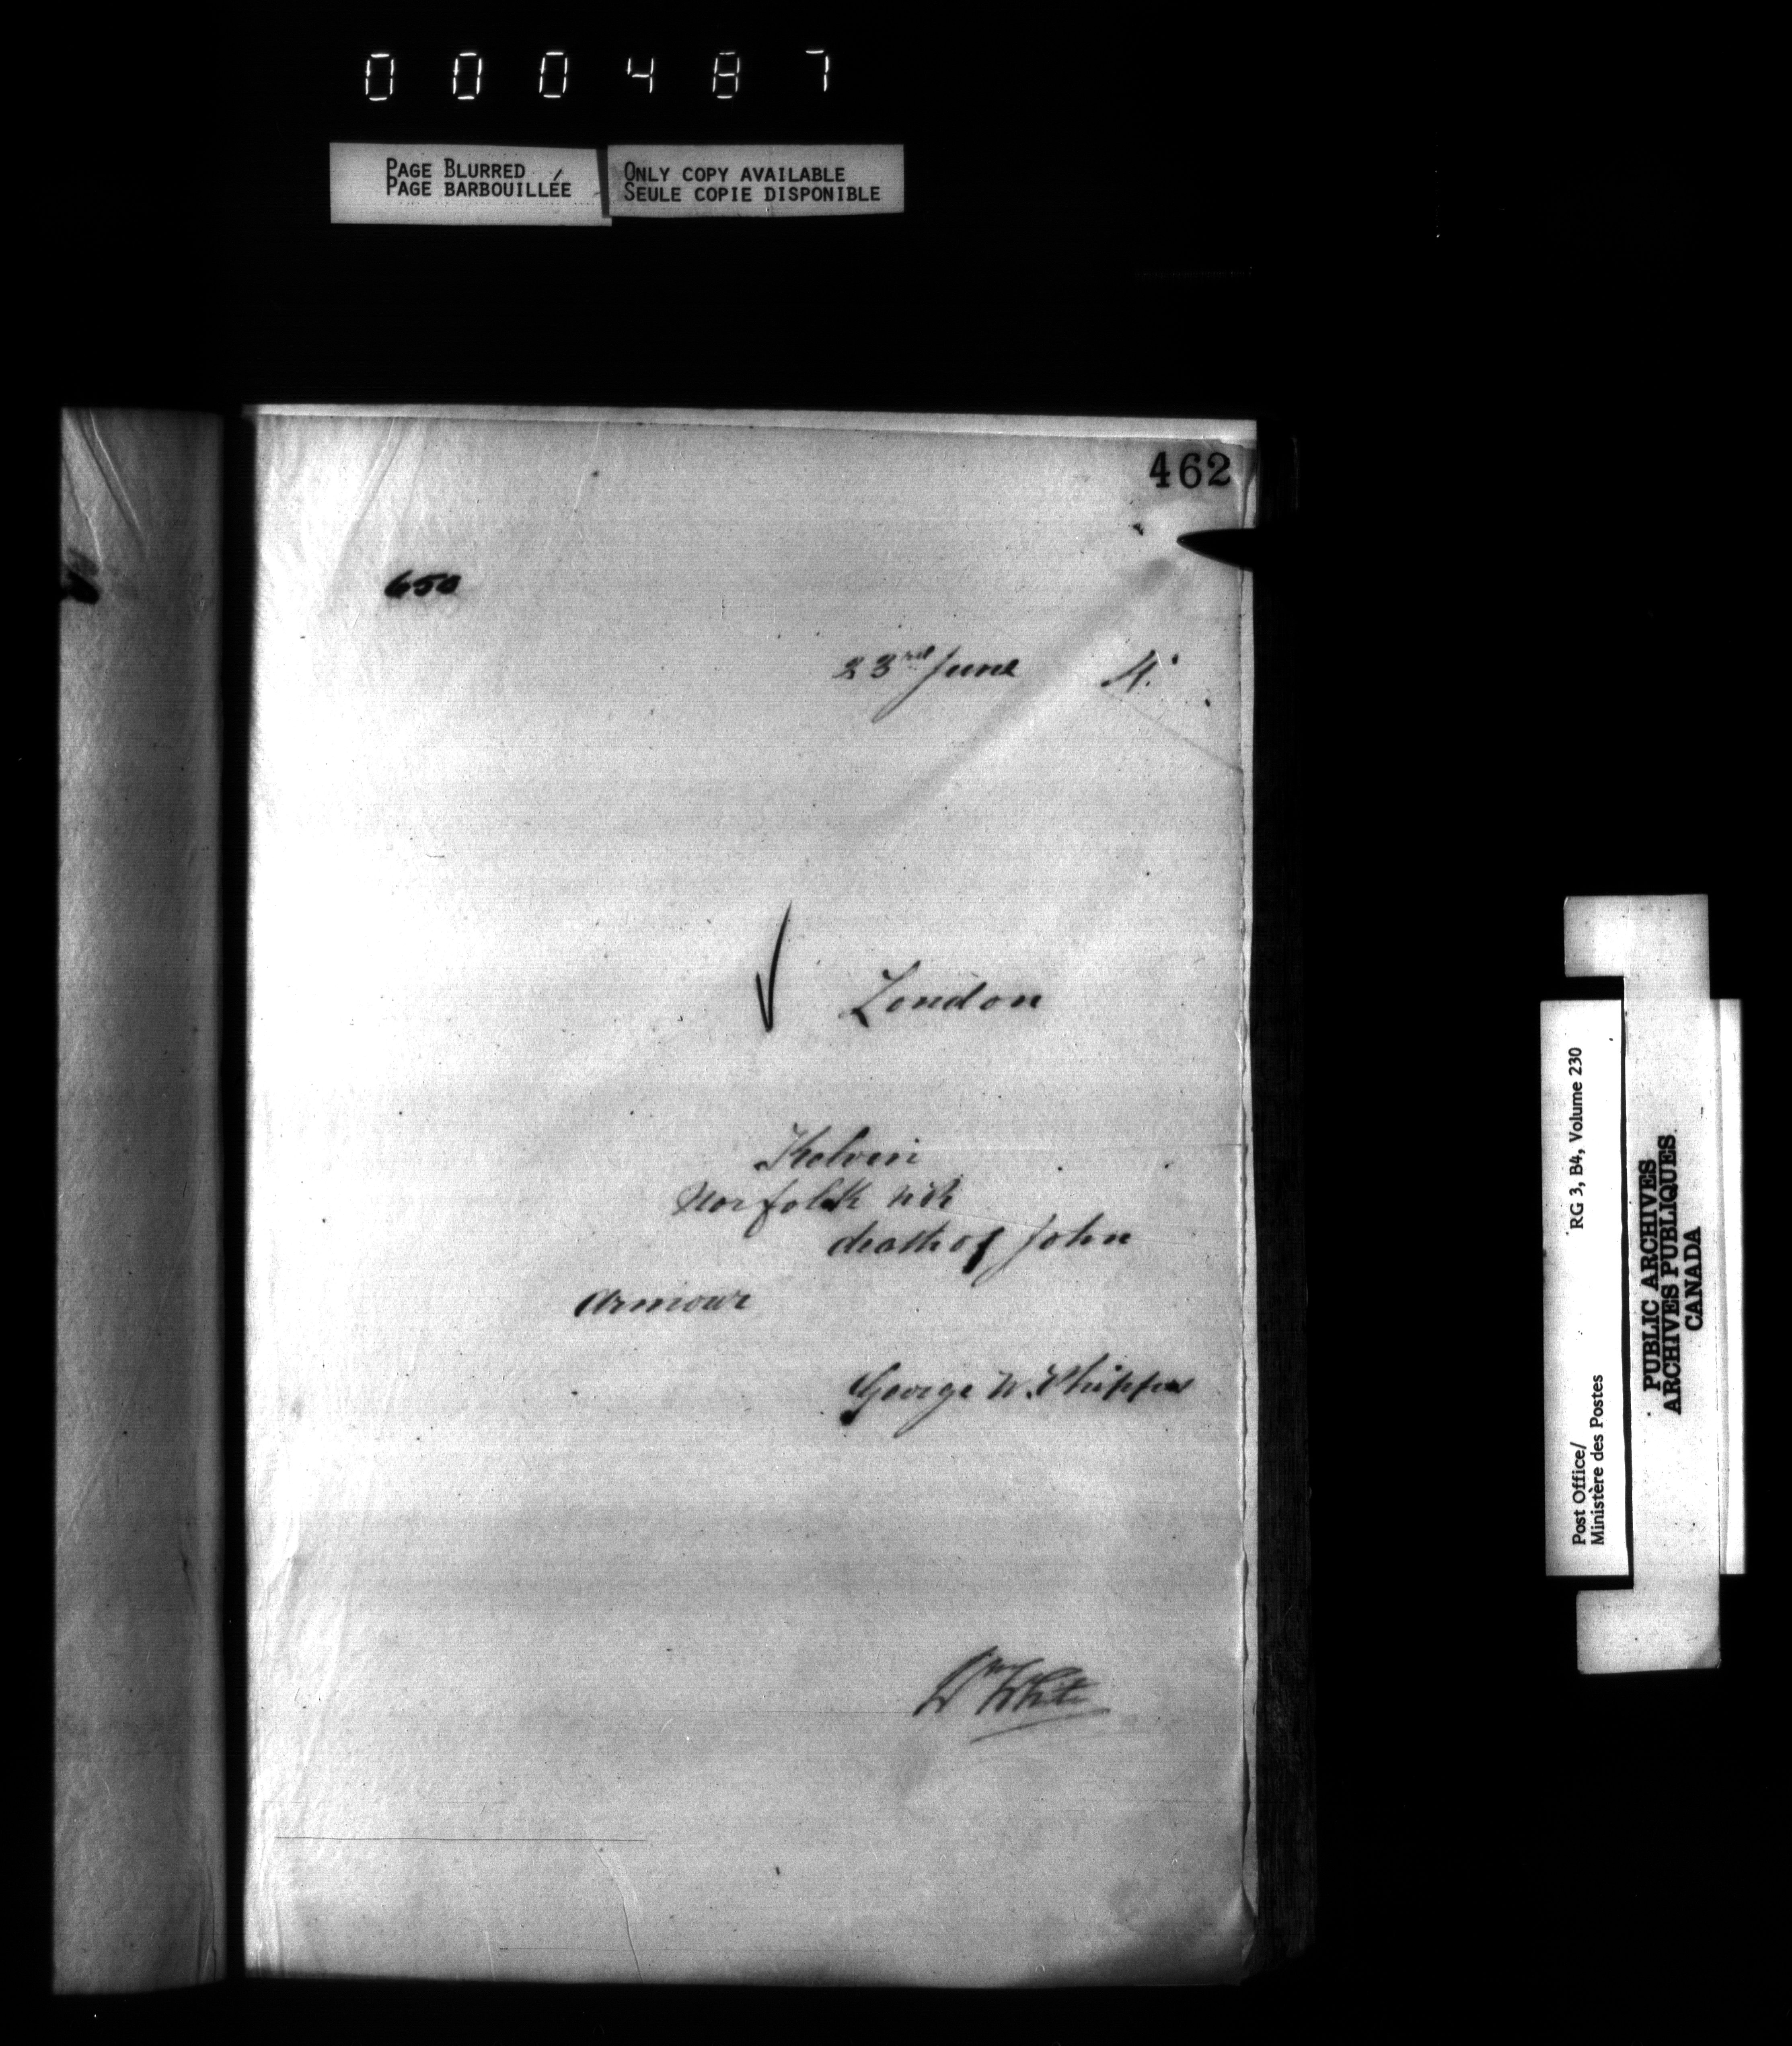 000487
PAGE BLURRED
PAGE BARBOUILLÉE
ONLY COPY AVAILABLE
SEULE COPIE DISPONIBLE
462
650
23rd June
London
Kelvin
Norfolk
death of John
Armour
George W. Whipple
Wm White
RG 3, B4, Volume 230
Post Office/
Ministère des Postes
PUBLIC ARCHIVES
ARCHIVES PUBLIQUES
CANADA